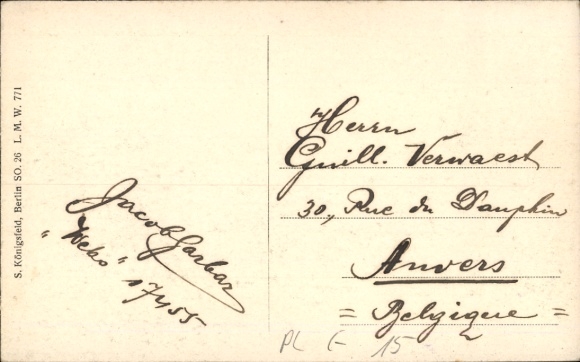 S. Königsfeld, Berlin SO. 26 L. M. W. 771
Jacob Garbar
"Weko" 17455
Herrn
Guill. Verwaest
30, Rue du Dauphin
Anvers
= Belgique =
PL E 15